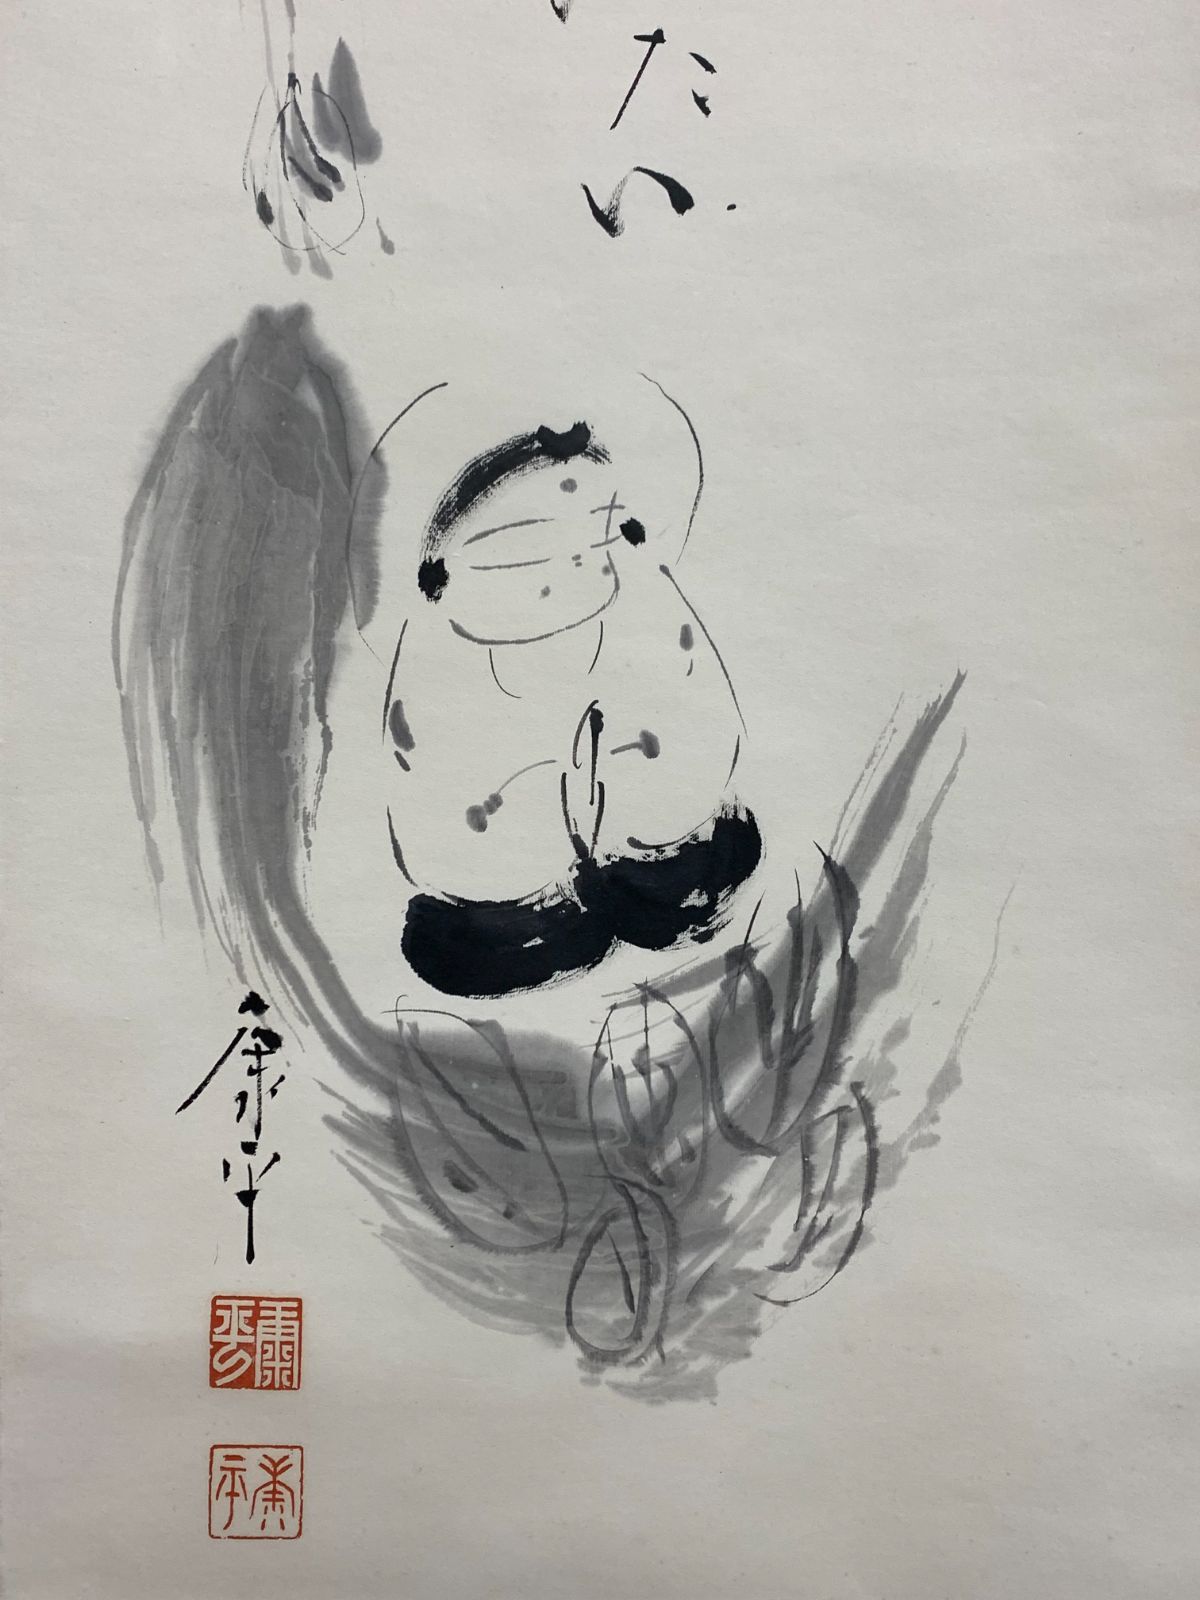 たい.
康平
康平
康平